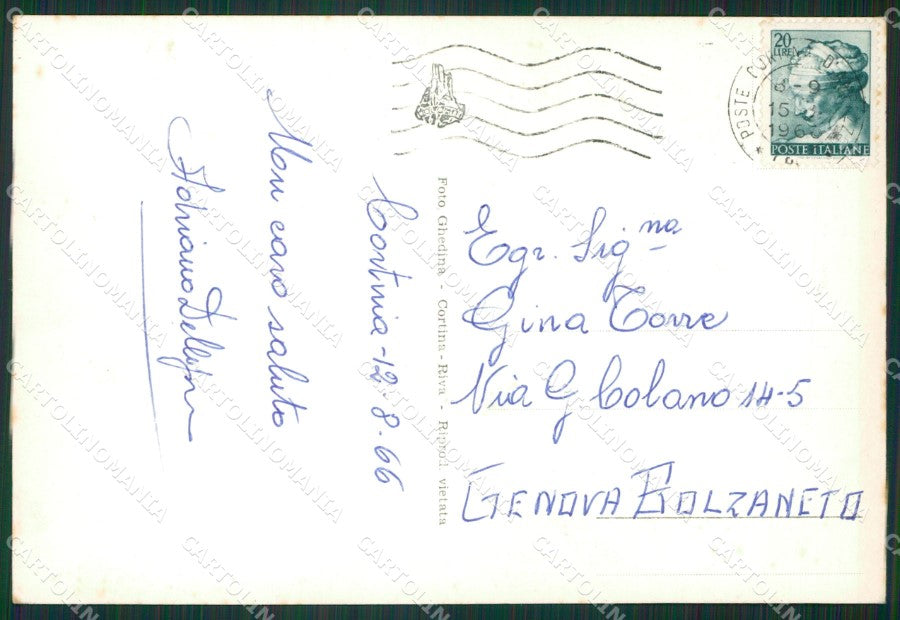 20
LIRE
POSTE ITALIANE
POSTE
8-9
15
196
Cortina-12.8.66
Un caro saluto
Adriano
Foto Ghedina - Cortina-Riva - Riprod. vietata
Egr. Signa
Gina Torre
Via G Colano 14-5
GENOVA BOLZANETO
CARTOLINOMANIA